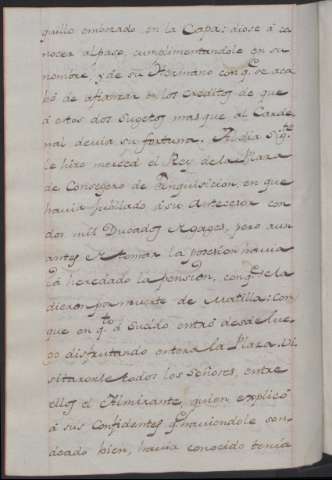 quillo embozado en la Capa: diose á co
nocer al paso, cumplimentandole en su
nombre, y de su Hermano con q.e se aca
bó de afianzar en los creditos de que
á estos dos Sugetos mas que al Carde
nal devia su fortuna. Al dia sig.te
le hizo merced el Rey de la Plaza
de Consegero de Inquisicion, en que
havia jubilado á su Antecesor con
dos mil Ducados gages, pero aun
antes de tomar la posesion havia
ya heredado la pension, con q.e se la
dieron por muerte de Matilla; con
que en q.to á sueldo entró desde lue
go disfrutando entera la Plaza. Vi
sitaronle todos los Señores, entre
ellos el Almirante, quien explicó
á sus Confidentes q.e haviendole son
deado bien, havia conocido tenia